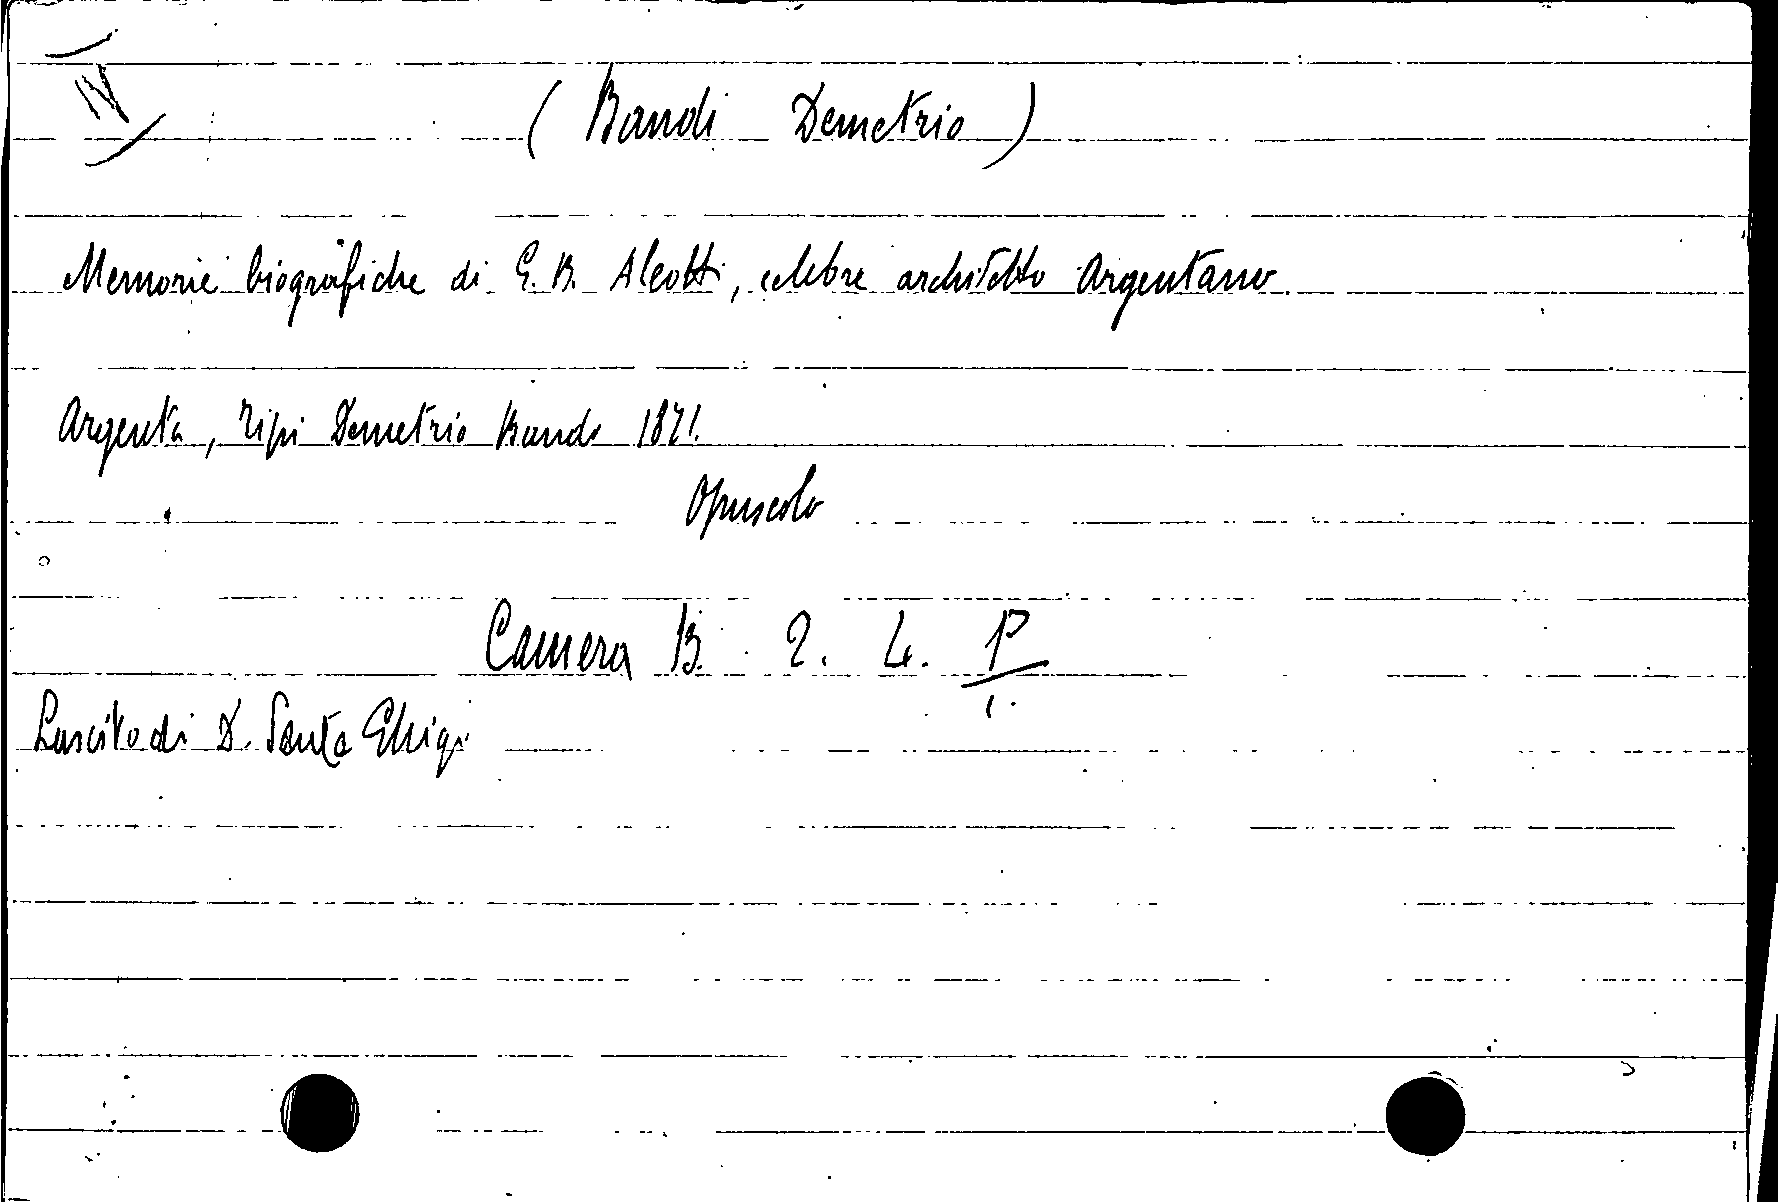 N
( Bandi Demetrio )
Memorie biografiche di G. B. Aleotti, celebre architetto Argentano.
Argenta, Tipi Demetrio Bandi 1871.
Opuscolo
Camera B. 2. 4. P
1.
Lascito di D. Santa Ghigi